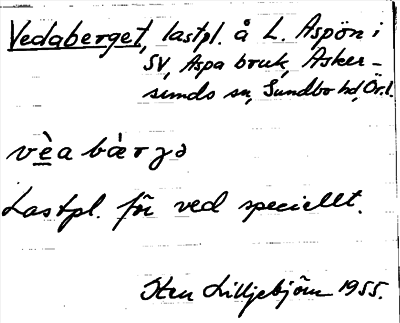 Vedaberget, lastpl. å L. Aspön i
SV, Aspa bruk, Asker-
sunds sn, Sundbo hd, Ör. l.
vè̲a bàrgə
Lastpl. för ved speciellt.
Sten Lilljebjörn 1955.